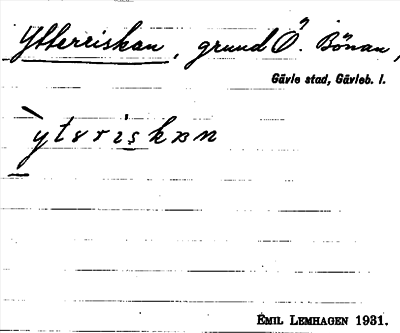 Ytterriskan, grund Ö. Bönan,
Gävle stad, Gävleb. l.
EMIL LEMHAGEN 1931.